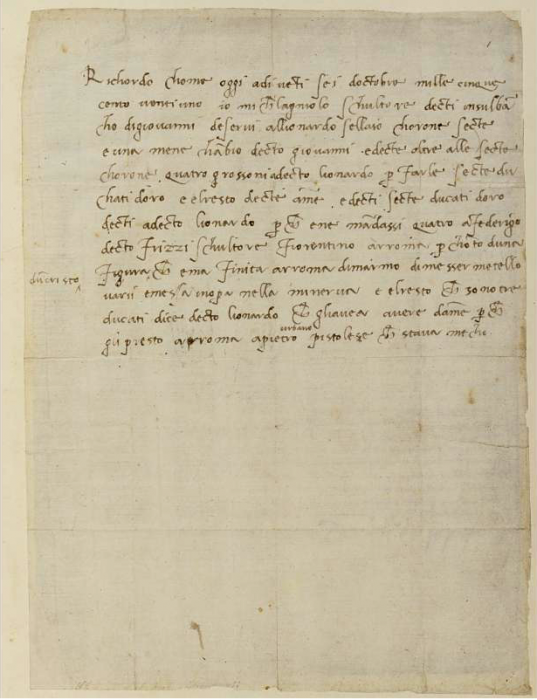 Richordo chome oggi adi ueti sei doctobre mille cinque
cento uentuno io michelagniolo schultore decti in sul bā
cho di giovanni deservi allionardo sellaio chorone secte
e una mene chābio decto giovanni e decte oltre alle secte
chorone quatro grossoni a decto lionardo p farle secte du
chati doro e el resto decte ame e decti secte ducati doro
decti a decto lionardo p che ne mādassi quatro a Federigo
decto Frizzi schultore Fiorentino arroma p chōto duna
Figura che ma Finita arroma di marmo di messer metello
dun cristo
varii e messa in opa nella minerva e el resto che sono tre
ducati dice decto lionardo che gli avea avere da me p che
gli presto arroma a pietro urbano pistolese che stava mecho